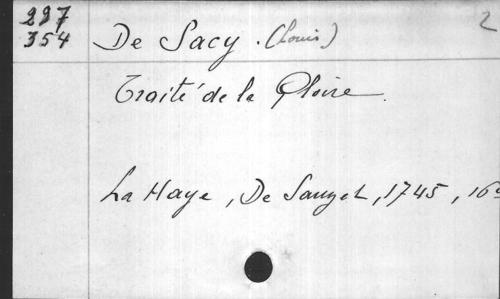 287
354
De Sacy. (Louis) 2
Traité de la Gloire.
La Haye, De Sauzet, 1745, 16º